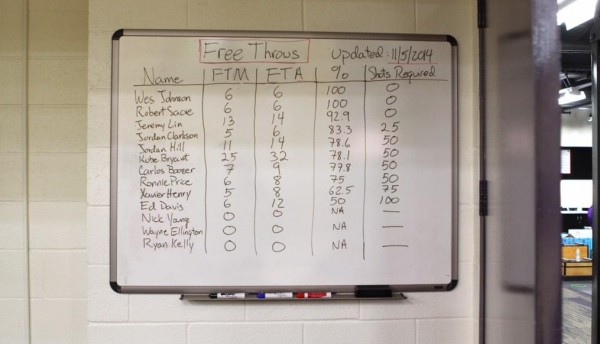 Free Throws Updated: 11/5/2014
Name FTM FTA % Shots Required
Wes Johnson 6 6 100 0
Robert Sacre 6 6 100 0
Jeremy Lin 13 14 92.9 0
Jordan Clarkson 5 6 83.3 25
Jordan Hill 11 14 78.6 50
Kobe Bryant 25 32 78.1 50
Carlos Boozer 7 9 77.8 50
Ronnie Price 6 8 75 50
Xavier Henry 5 8 62.5 75
Ed Davis 6 12 50 100
Nick Young 0 0 NA —
Wayne Ellington 0 0 NA —
Ryan Kelly 0 0 NA —